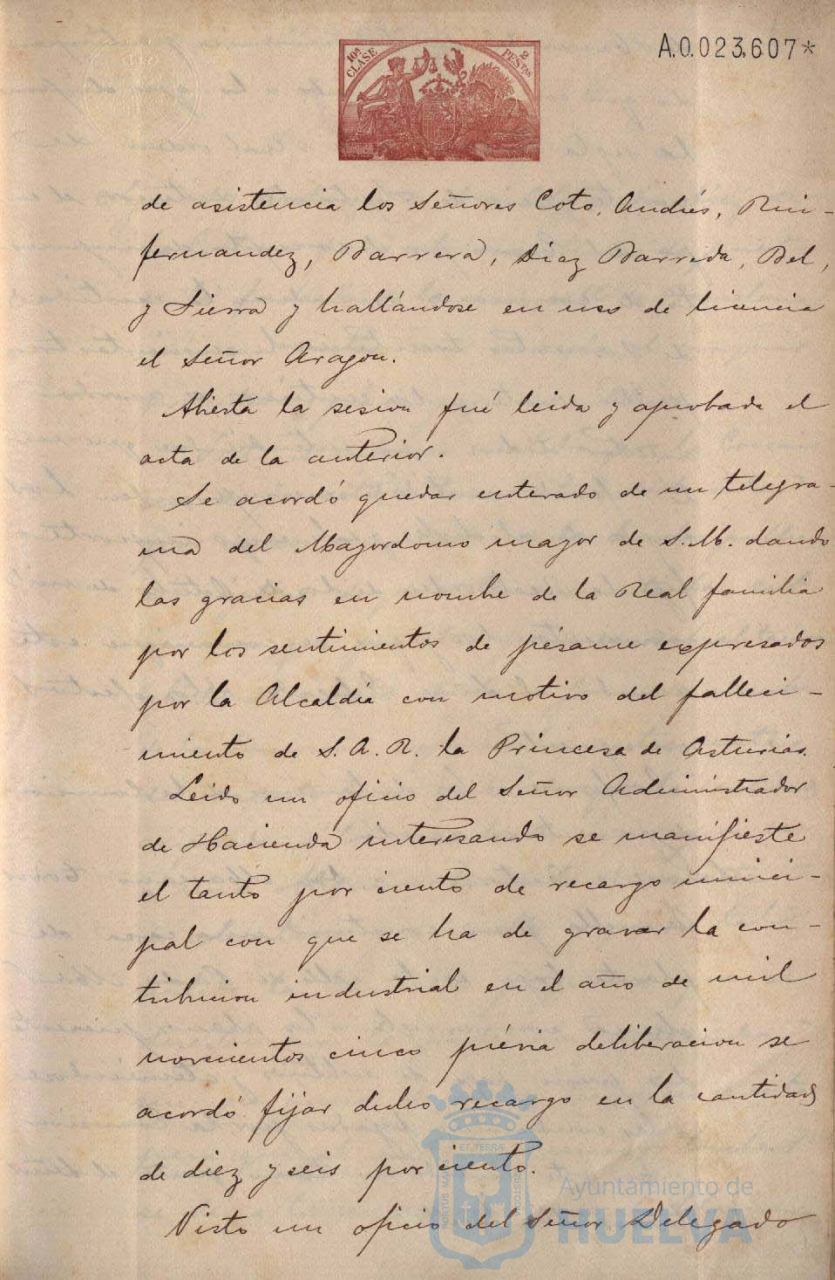 A.0.023,607*
10ª CLASE
2 PESTAS
de asistencia los Señores Coto, Andrés, Rui-
fernandez, Barrera, Diaz Barreda, Bel,
y Sierra y hallándose en uso de licencia
el Señor Aragon.
Abierta la sesion fué leida y aprobada el
acta de la anterior.
Se acordó quedar enterado de un telegra-
ma del Mayordomo mayor de S.M. dando
las gracias en nombre de la Real familia
por los sentimientos de pésame expresados
por la Alcaldía con motivo del falleci-
miento de S.A.R. la Princesa de Asturias.
Leido un oficio del Señor Administrador
de Hacienda interesando se manifieste
el tanto por ciento de recargo munici-
pal con que se ha de gravar la con-
tribucion industrial en el año de mil
novecientos cinco prévia deliberacion se
acordó fijar dicho recargo en la cantidad
de diez y seis por ciento.
Visto un oficio del Señor Delegado
Ayuntamiento de
HUELVA